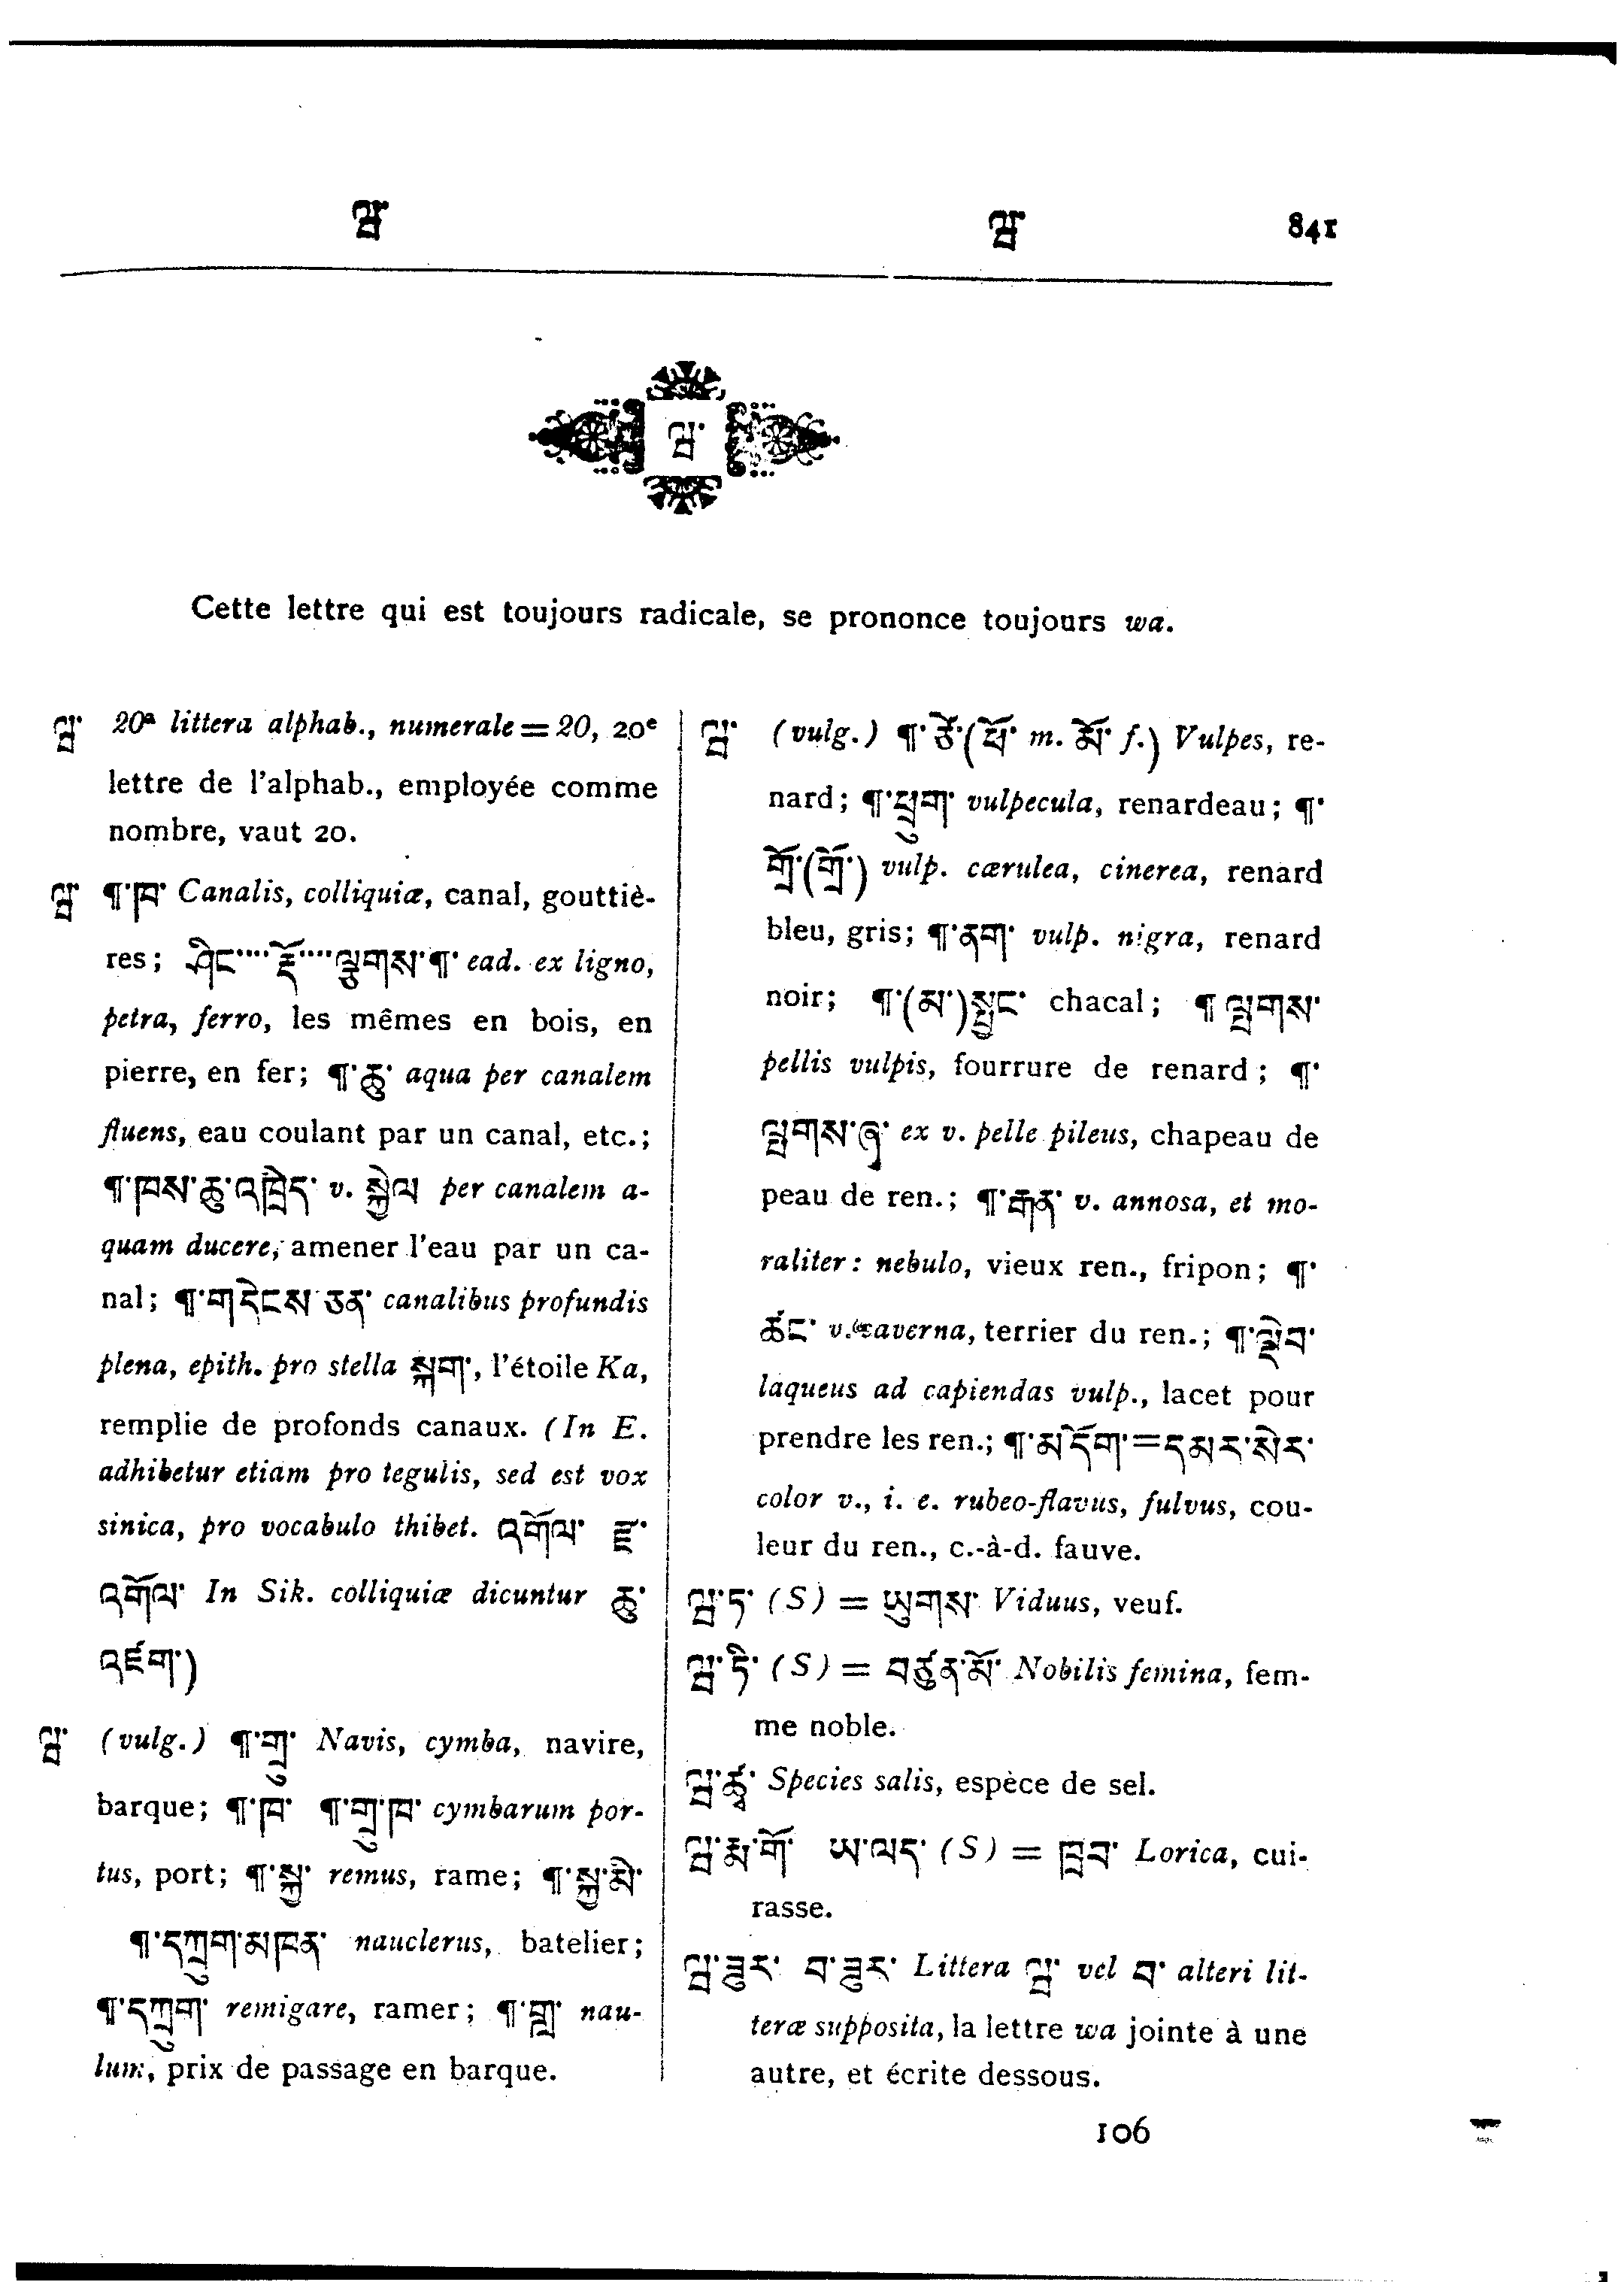 ཝ་ ཝ་ 841
ཝ་
Cette lettre qui est toujours radicale, se prononce toujours wa.
ཝ་ 20ª littera alphab., numerale = 20, 20ᵉ
lettre de l'alphab., employée comme
nombre, vaut 20.
ཝ་ ¶་ཁ་ Canalis, colliquiæ, canal, gouttiè-
res; ཤིང་····རྡོ་····ལྕགས་¶་ ead. ex ligno,
petra, ferro, les mêmes en bois, en
pierre, en fer; ¶་ཆུ་ aqua per canalem
fluens, eau coulant par un canal, etc.;
¶་ཁས་ཆུ་འཁྲིད་ v. སྐྱེལ་ per canalem a-
quam ducere, amener l'eau par un ca-
nal; ¶་གདེངས་ཅན་ canalibus profundis
plena, epith. pro stella སྐག་, l'étoile Ka,
remplie de profonds canaux. (In E.
adhibetur etiam pro tegulis, sed est vox
sinica, pro vocabulo thibet. འགོལ་ ཇ་
འགོལ་ In Sik. colliquiæ dicuntur ཆུ་
འཛག་)
ཝ་ (vulg.) ¶་གྲུ་ Navis, cymba, navire,
barque; ¶་ཁ་ ¶་གྲུ་ཁ་ cymbarum por-
tus, port; ¶་སྐྱ་ remus, rame; ¶་སྐྱ་མི་
¶་དཀྲུག་མཁན་ nauclerus, batelier;
¶་དཀྲུག་ remigare, ramer; ¶་གླ་ nau-
lum, prix de passage en barque.
ཝ་ (vulg.) ¶་ཙེ་(ཕོ་ m. མོ་ f.) Vulpes, re-
nard; ¶་ཕྲུག་ vulpecula, renardeau; ¶་
གྲོ་(གྲོ་) vulp. cærulea, cinerea, renard
bleu, gris; ¶་ནག་ vulp. nigra, renard
noir; ¶་(མ་)སྤྱང་ chacal; ¶ ལྤགས་
pellis vulpis, fourrure de renard; ¶་
ལྤགས་ཞྭ་ ex v. pelle pileus, chapeau de
peau de ren.; ¶་རྒན་ v. annosa, et mo-
raliter: nebulo, vieux ren., fripon; ¶་
ཚང་ v. caverna, terrier du ren.; ¶་ལྡེབ་
laqueus ad capiendas vulp., lacet pour
prendre les ren.; ¶་མདོག་=དམར་སེར་
color v., i. e. rubeo-flavus, fulvus, cou-
leur du ren., c.-à-d. fauve.
ཝ་ཏ་ (S) = ཡུགས་ Viduus, veuf.
ཝ་ཏི་ (S) = བཙུན་མོ་ Nobilis femina, fem-
me noble.
ཝ་ཚྭ་ Species salis, espèce de sel.
ཝ་རྨ་གོ་ ཡ་ལད་ (S) = ཁྲབ་ Lorica, cui-
rasse.
ཝ་ཟུར་ བ་ཟུར་ Littera ཝ་ vel བ་ alteri lit-
teræ supposita, la lettre wa jointe à une
autre, et écrite dessous.
106